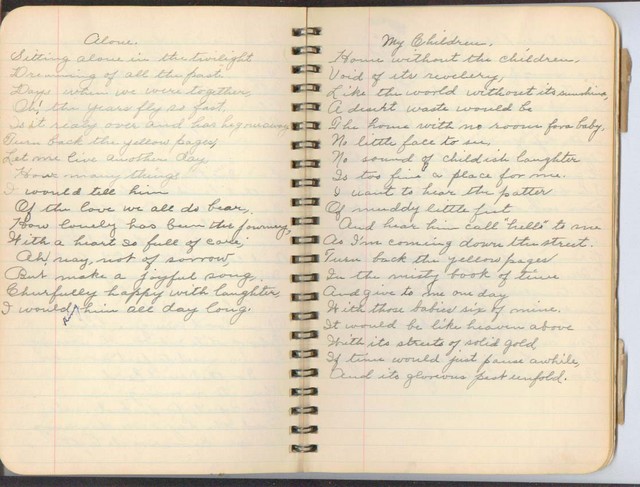 Alone.
Sitting alone in the twilight
Dreaming of all the past
Days when we were together,
Oh! the years fly so fast,
Is it realy over and has he gone away
Turn back the yellow pages
Let me live another day
How many things
I would tell him
Of the love we all do bear,
How lonely has been the journey,
With a heart so full of care,
Ah! nay, not of sorrow,
But make a joyful song,
Churfully happy with laughter,
I would him all day long.
My Children.
Home without the children,
Void of its revelery,
Like the world without its sunshine,
A desert waste would be
The home with no room for a baby,
No little face to see,
No sound of childish laughter
Is too fine a place for me.
I want to hear the patter
Of muddy little feet
And hear him call "hello" to me
As I'm coming down the street.
Turn back the yellow pages
In the misty book of time
And give to me one day
With those babies six of mine.
It would be like heaven above
With its streets of solid gold
If time would just pause awhile,
And its glorious past unfold.